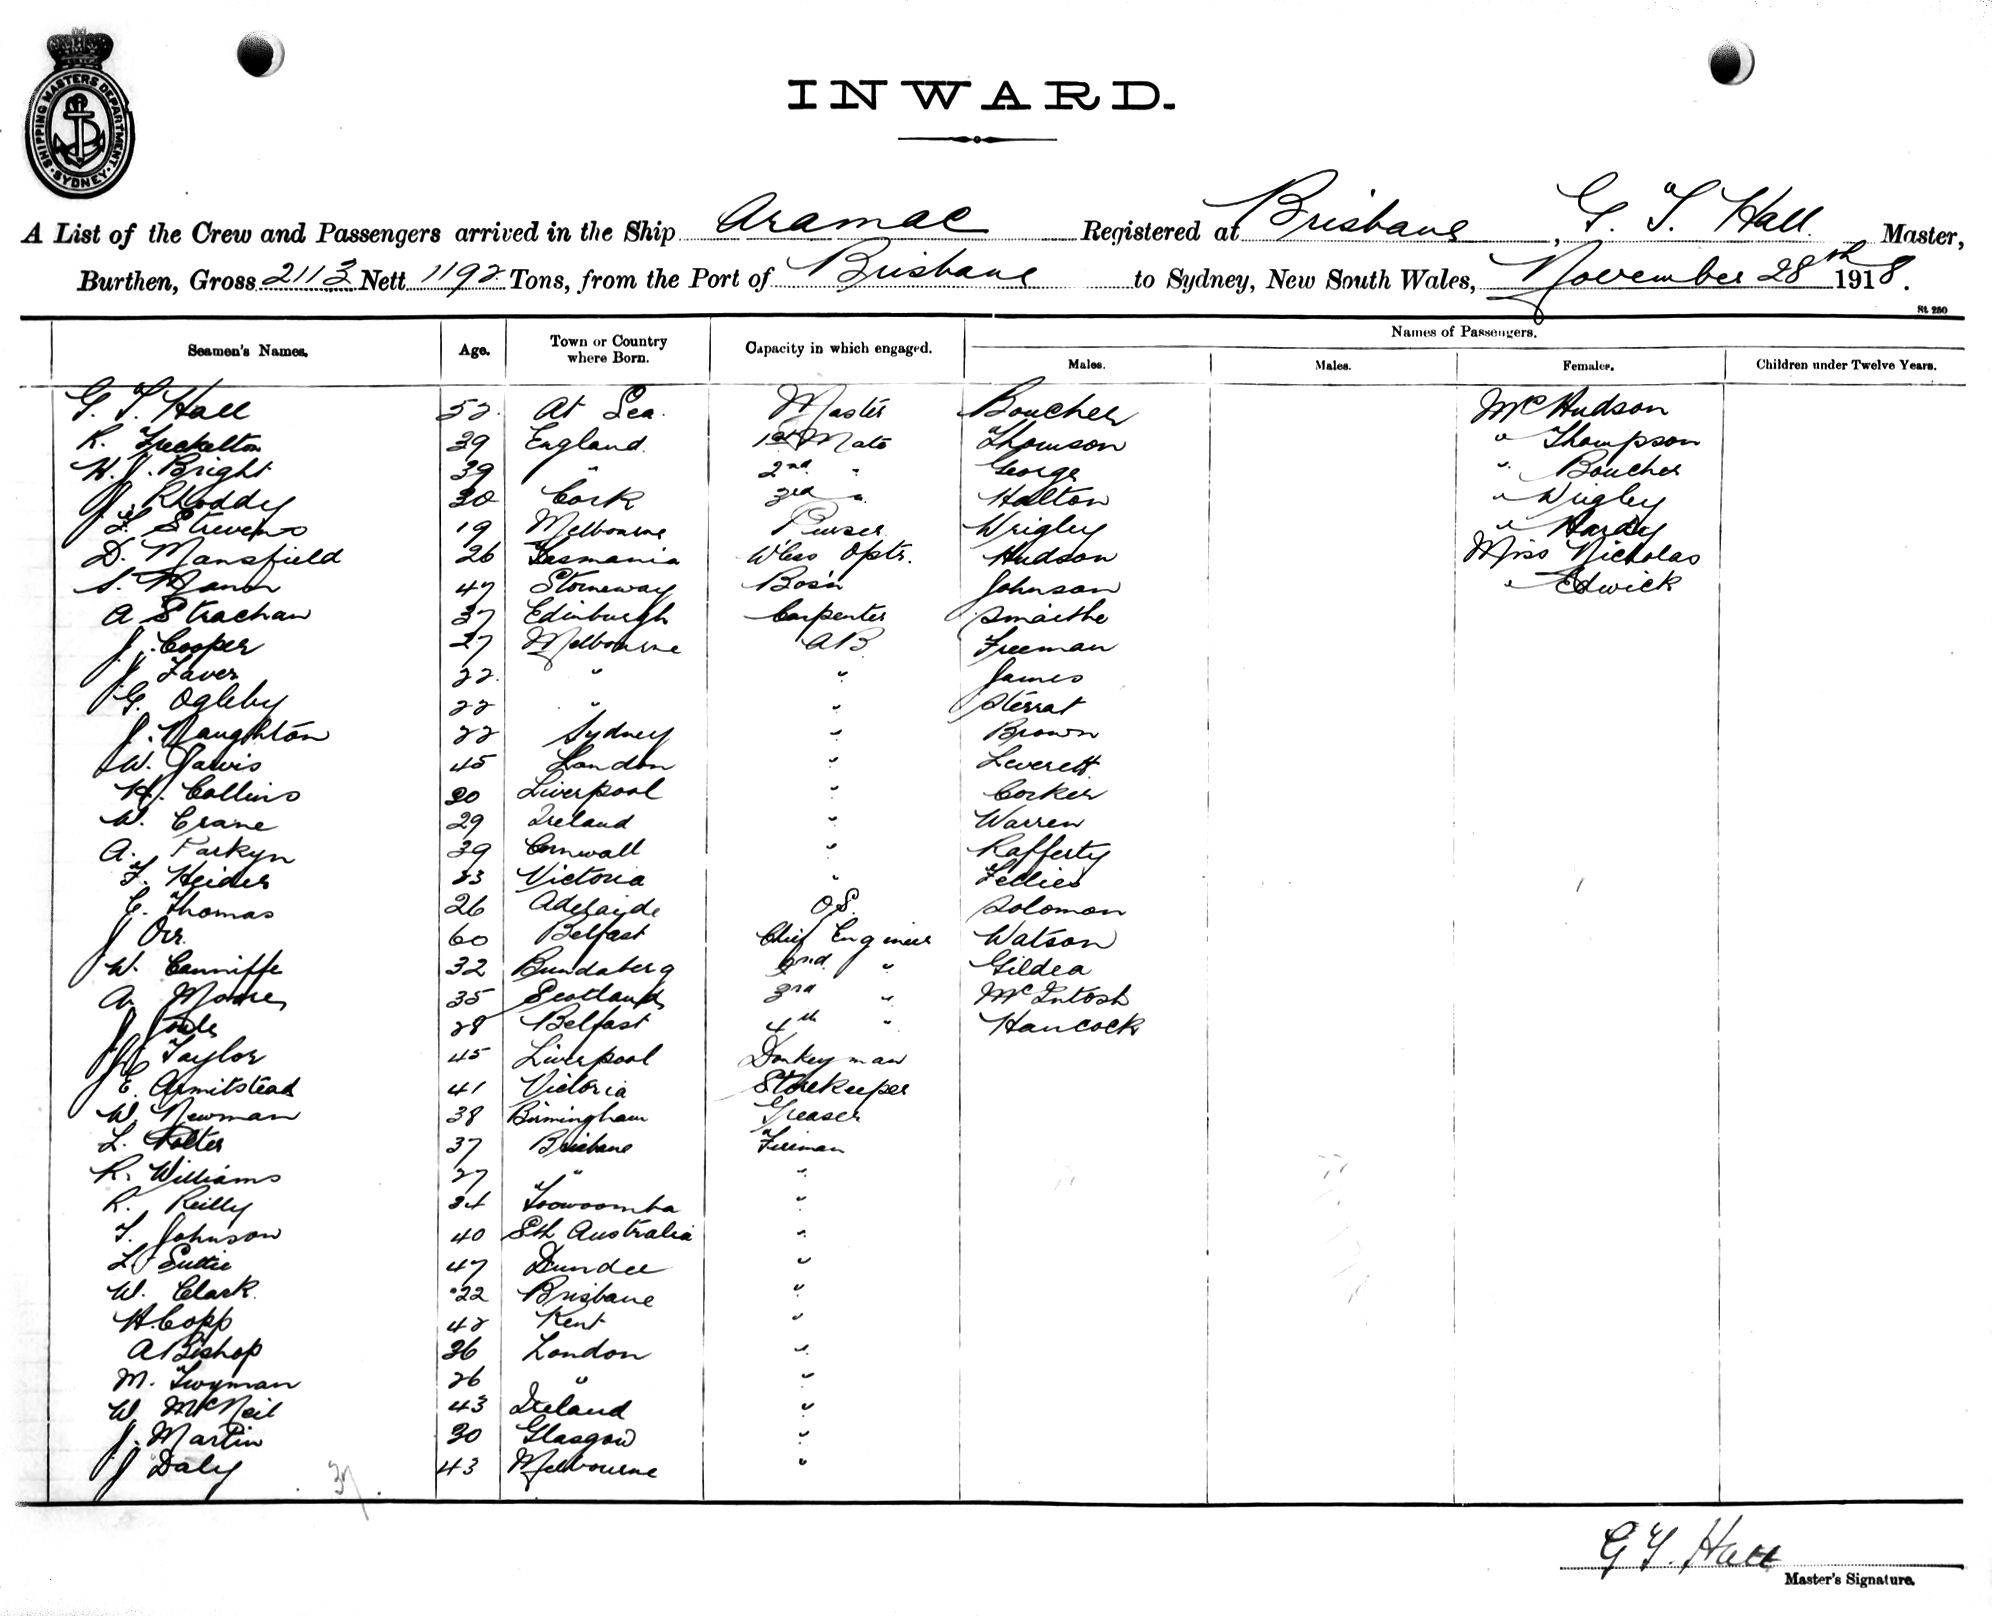 SHIPPING MASTERS DEPARTMENT. SYDNEY
INWARD.
A List of the Crew and Passengers arrived in the Ship Aramac Registered at Brisbane, G. T. Hall. Master,
Burthen, Gross 2113 Nett 1192 Tons, from the Port of Brisbane to Sydney, New South Wales, November 28th 1918.
St 250
Names of Passengers.
Seamen's Names. Age. Town or Country where Born. Capacity in which engaged. Males. Males. Females. Children under Twelve Years.
G. T. Hall 52 At Sea. Master Boucher Mrs Hudson
R. Freckelton 39 England. 1st Mate Thomson " Thompson
W. J. Bright 39 " 2nd " George " Boucher
J. Rhoddy 30 Cork 3rd " Halton " Wrigley
F. Strevens 19 Melbourne Purser Wrigley " Hardy
D. Mansfield 26 Tasmania W'less Optr. Hudson Miss Nicholas
S. Mann 47 Storneway Bos'n Johnson " Edwick
A Strachan 37 Edinburgh Carpenter Smaithe
J. Cooper 27 Melbourne AB Freeman
J. Faver 22 " " James
G. Ogleby 22 " " Sterrat
J. Naughton 22 Sydney " Brown
W. Jarvis 45 London " Leverett
H. Collins 30 Liverpool " Corker
W. Crane 29 Ireland " Warren
A. Farkyn 39 Cornwall " Rafferty
F. Heider 23 Victoria "
C. Thomas 26 Adelaide O.S. Solomon
J Orr. 60 Belfast Chief Engineer Watson
W. Canniffe 32 Bundaberg 2nd " Gildea
A. 35 Scotland 3rd " McIntosh
J 28 Belfast 4th " Hancock
Taylor 45 Liverpool Donkeyman
E. Armitstead 41 Victoria Storekeeper
W. Newman 38 Birmingham Greaser
L. Potter 37 Brisbane Fireman
R. Williams 27 " "
R. Reilly 34 Toowoomba "
T. Johnson 40 Sth Australia "
L Suttie 47 Dundee "
W. Clark. 22 Brisbane "
H. Copp 42 Kent "
A Bishop 36 London "
M. Twyman 26 " "
W. McNeil 43 Ireland "
J. Martin 30 Glasgow "
J Daly 43 Melbourne "
37
G T. Hall
Master's Signature.